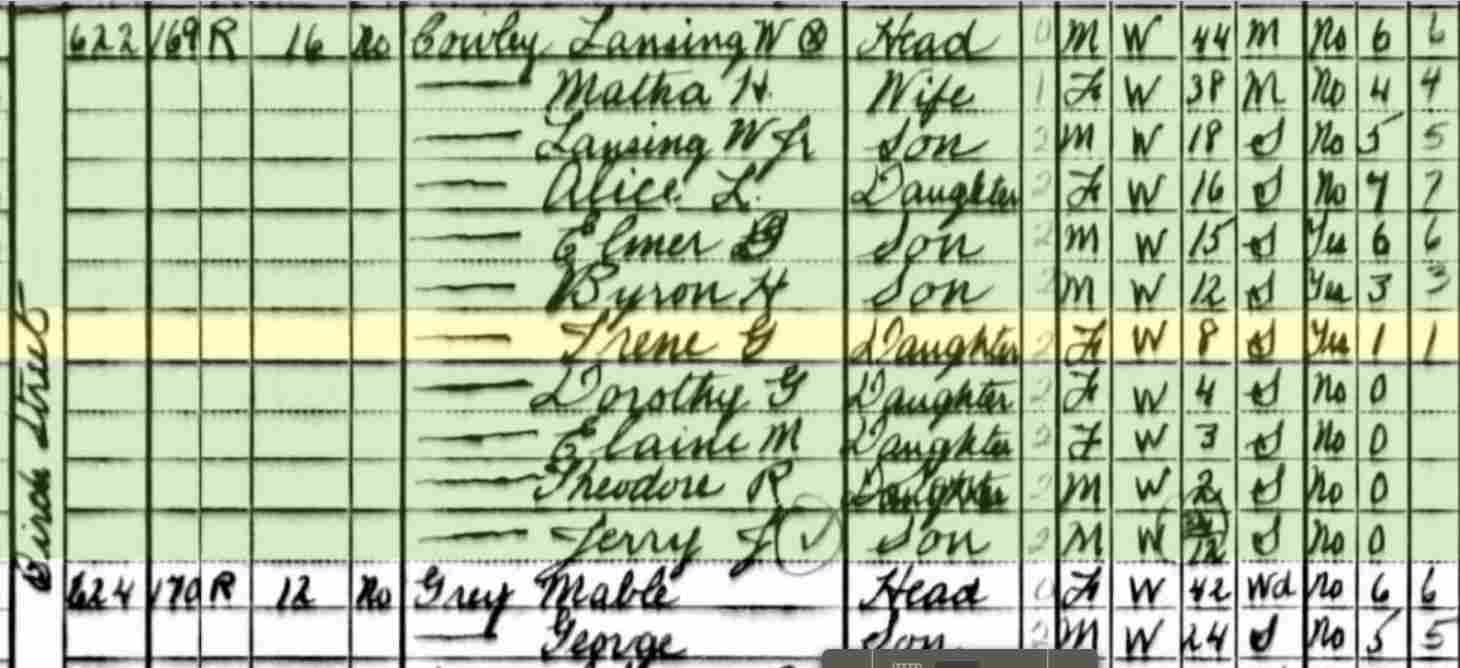 622 169 R 16 No Cowley Lansing W Head 0 M W 44 M No 6 6
Matha H. Wife 1 F W 38 M No 4 4
Lansing W Jr Son 2 M W 18 S No 5 5
Alice L. Daughter 2 F W 16 S No 7 7
Elmer Son 2 M W 15 S Yes 6 6
Byron H Son 2 M W 12 S Yes 3 3
Irene G Daughter 2 F W 8 S Yes 1 1
Dorothy G Daughter 2 F W 4 S No 0
Elaine M Daughter 2 F W 3 S No 0
Theodore R Daughter 2 M W 2 S No 0
Jerry J Son 2 M W 12 S No 0
624 170 R 12 No Grey Mable Head 0 F W 42 Wd No 6 6
George Son 2 M W 24 S No 5 5
Birch Street